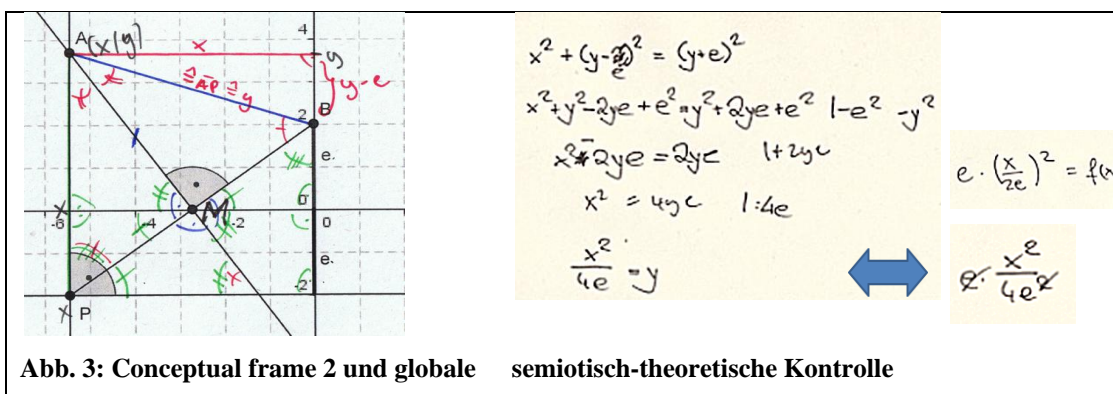 A (x|y)
x
4
y
≙ AP ≙ y
y-e
B
2
e
0
-6
-4
M
-2
0
e
-2
x P
x² + (y-e)² = (y+e)²
x² + y² - 2ye + e² = y² + 2ye + e² |-e² -y²
x² - 2ye = 2ye |+2ye
x² = 4ye |:4e
x²/4e = y
e · (x/2e)² = f(x
e · x²/4e²
Abb. 3: Conceptual frame 2 und globale semiotisch-theoretische Kontrolle